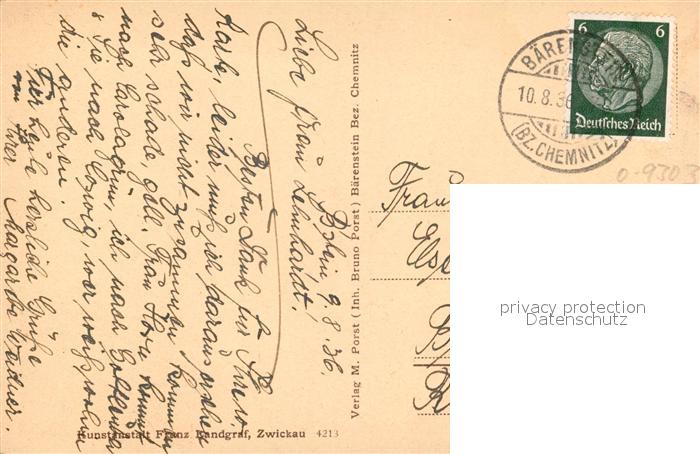 Bstein, 9.8.36.
Liebe Frau Lenhardt!
Besten Dank für Ihre l.
Karte, leider muß ich daraus ersehen
daß wir nicht zusammen kommen
sehr schade gell. Frau Horn kommt
nach Carolagrün, ich nach Gottleuba
u. Sie nach Coswig, wer weiß wohin
die anderen.
Für heute herzliche Grüße
von Ihrer
Verlag M. Porst (Inh. Bruno Porst) Bärenstein Bez. Chemnitz
Kunstanstalt Franz Landgraf, Zwickau 4213
6 6
Deutsches Reich
BÄRENSTEIN
10.8.36
(BZ. CHEMNITZ)
0-9303
Frau
privacy protection
Datenschutz